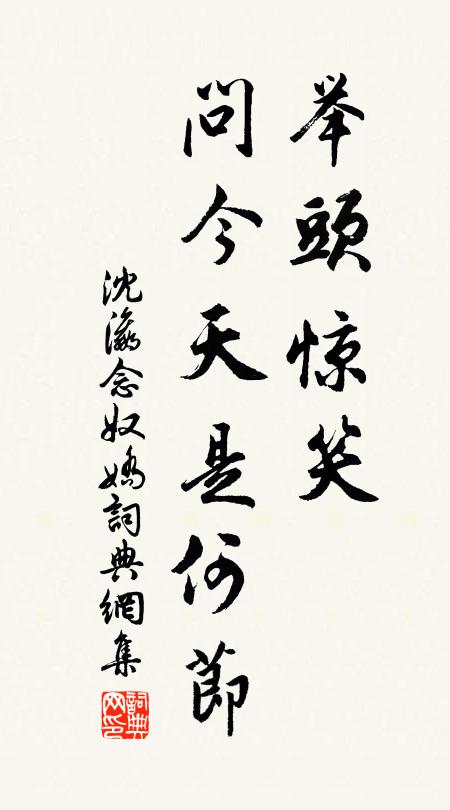 举頭惊笑
問今天是何節
沈瀛念奴嬌詞典網集
詞典网印